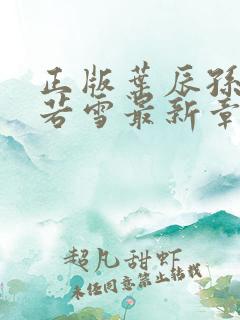 正版叶辰孙
若雪最新章
超凡甜虾
未经同意禁止转载